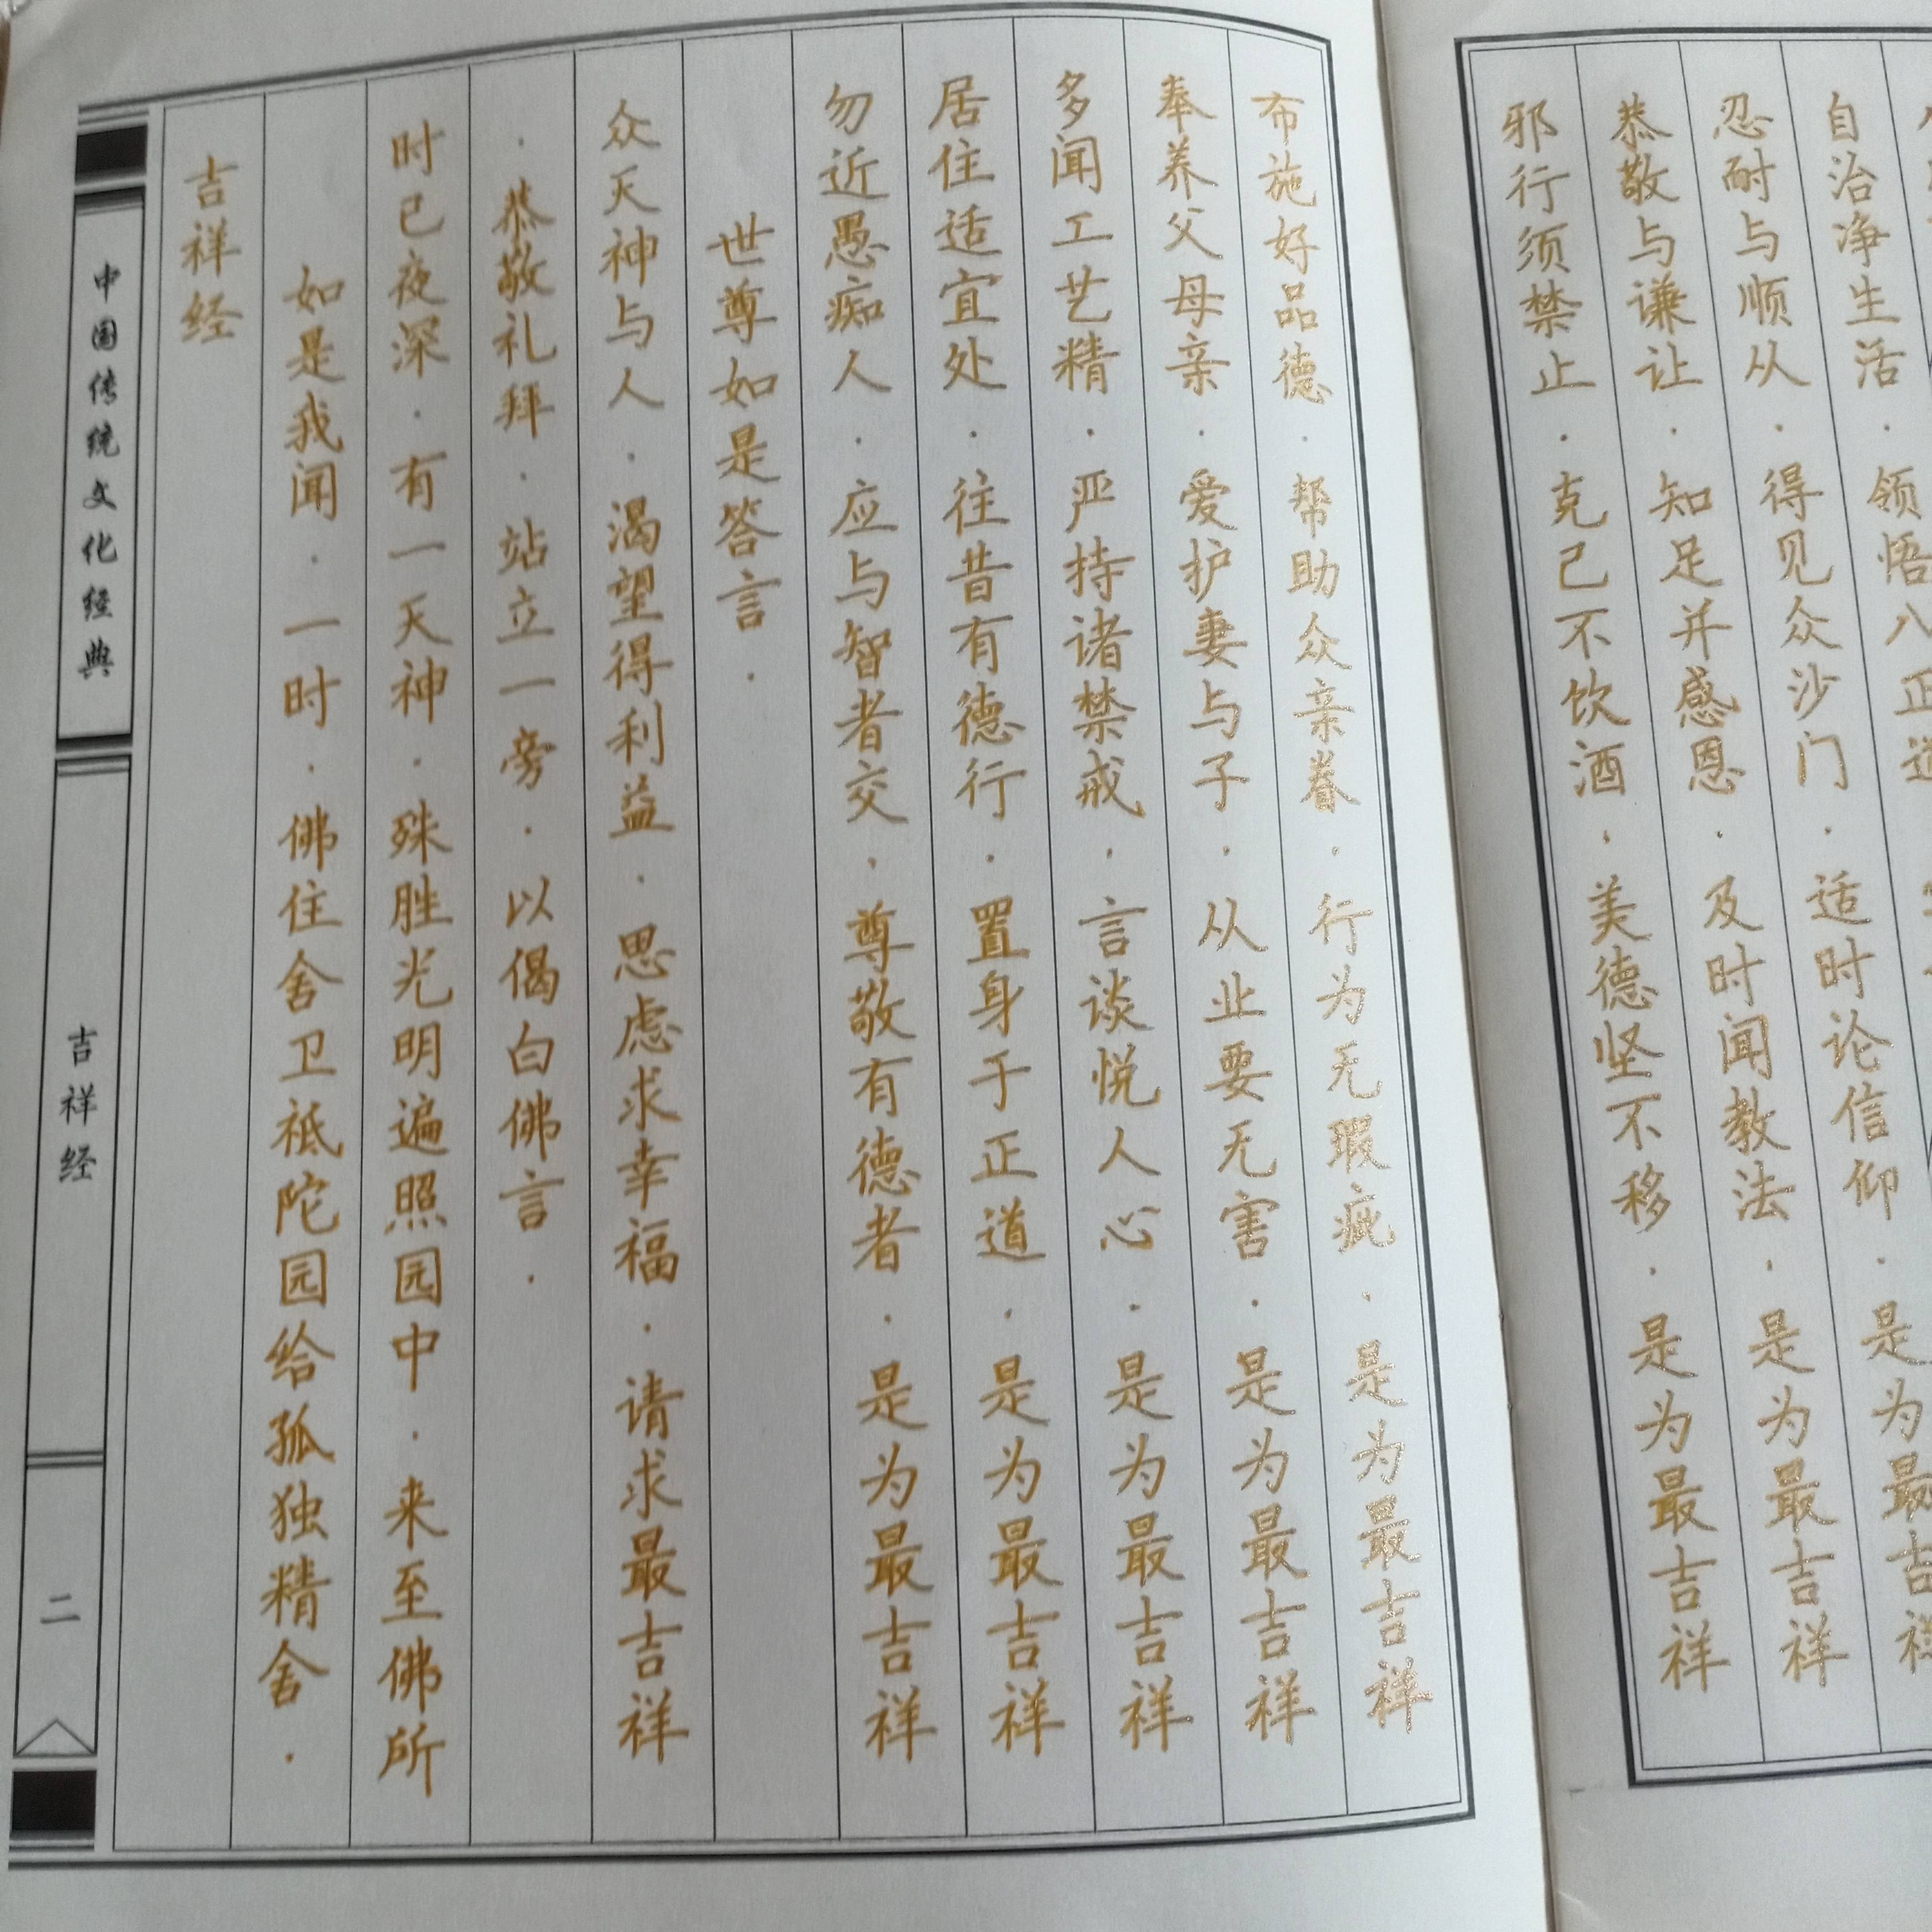 中国传统文化经典
吉祥经
二
吉祥经
如是我闻·一时·佛住舍卫祇陀园给孤独精舍·
时已夜深·有一天神·殊胜光明遍照园中·来至佛所
·恭敬礼拜·站立一旁·以偈白佛言·
众天神与人·渴望得利益·思虑求幸福·请求最吉祥
世尊如是答言·
勿近愚痴人·应与智者交·尊敬有德者·是为最吉祥
居住适宜处·往昔有德行·置身于正道·是为最吉祥
多闻工艺精·严持诸禁戒·言谈悦人心·是为最吉祥
奉养父母亲·爱护妻与子·从业要无害·是为最吉祥
布施好品德·帮助众亲眷·行为无瑕疵·是为最吉祥
邪行须禁止·克己不饮酒·美德坚不移·是为最吉祥
恭敬与谦让·知足并感恩·及时闻教法·是为最吉祥
忍耐与顺从·得见众沙门·适时论信仰·是为最吉祥
自治净生活·领悟八正道 是为最吉祥